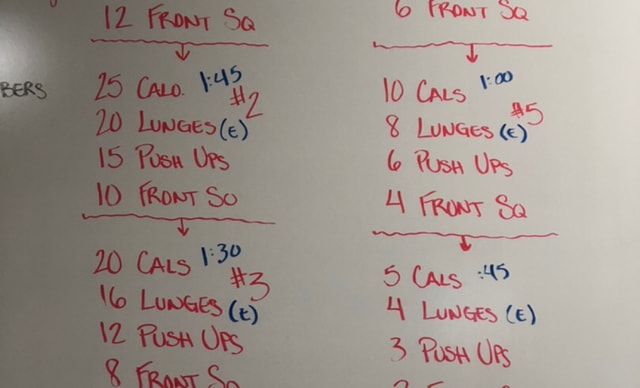 12 FRONT SQ
BERS
25 CALO. 1:45
#2
20 LUNGES (E)
15 PUSH UPS
10 FRONT SQ
20 CALS 1:30
#3
16 LUNGES (E)
12 PUSH UPS
8 FRONT SQ
6 FRONT SQ
10 CALS 1:00
#5
8 LUNGES (E)
6 PUSH UPS
4 FRONT SQ
5 CALS :45
4 LUNGES (E)
3 PUSH UPS